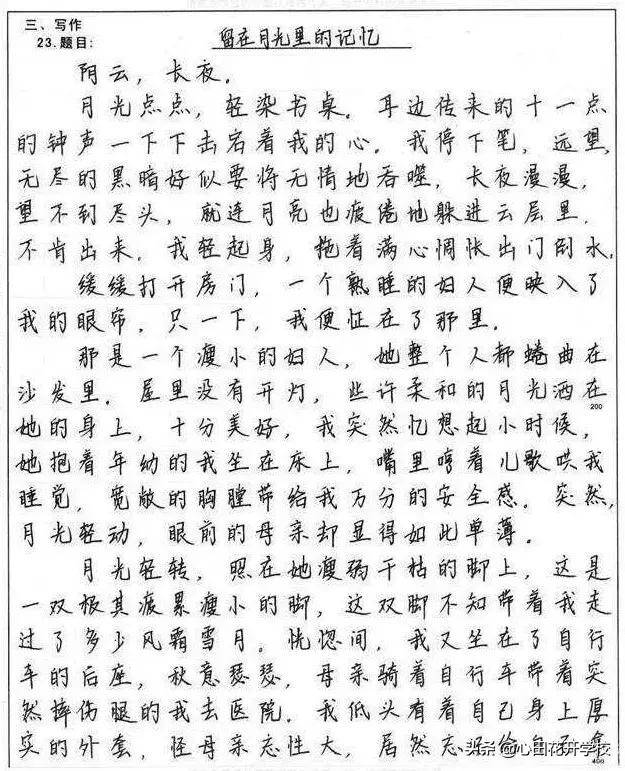 三、写作
23.题目: 留在月光里的记忆
阴云，长夜。
月光点点，轻染书桌。耳边传来的十一点
的钟声一下下击宕着我的心。我停下笔，远望，
无尽的黑暗好似要将无情地吞噬，长夜漫漫，
望不到尽头，就连月亮也疲倦地躲进云层里，
不肯出来。我轻起身，拖着满心惆怅出门倒水。
缓缓打开房门，一个熟睡的妇人便映入了
我的眼帘，只一下，我便怔在了那里。
那是一个瘦小的妇人，她整个人都蜷曲在
沙发里。屋里没有开灯，些许柔和的月光洒在
200
她的身上，十分美好，我突然忆想起小时候，
她抱着年幼的我坐在床上，嘴里哼着儿歌哄我
睡觉，宽敞的胸膛带给我万分的安全感。突然，
月光轻动，眼前的母亲却显得如此单薄。
月光轻转，照在她瘦弱干枯的脚上，这是
一双极其疲累瘦小的脚，这双脚不知带着我走
过了多少风霜雪月。恍惚间，我又坐在了自行
车的后座，秋意瑟瑟，母亲骑着自行车带着突
然摔伤腿的我去医院。我低头看着自己身上厚
实的外套，怪母亲忘性大，居然忘
头条 @心田花开学校
400